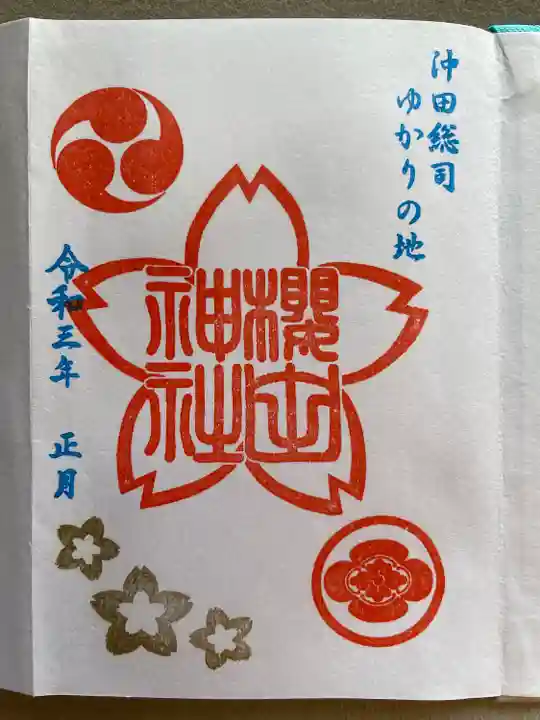 沖田総司
ゆかりの地
櫻田
神社
令和三年 正月